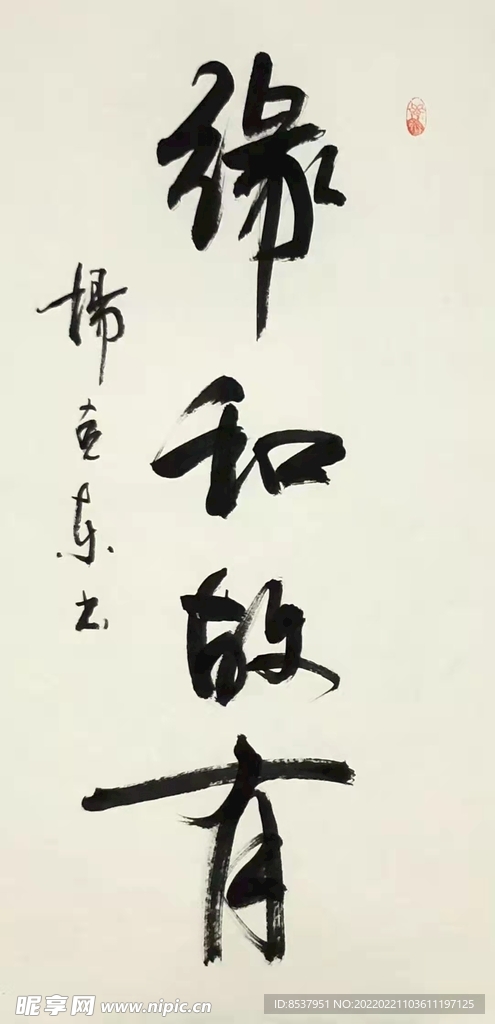 缘和故有
杨克东书
昵享网 www.nipic.cn
ID:8537951 NO:20220221103611197125